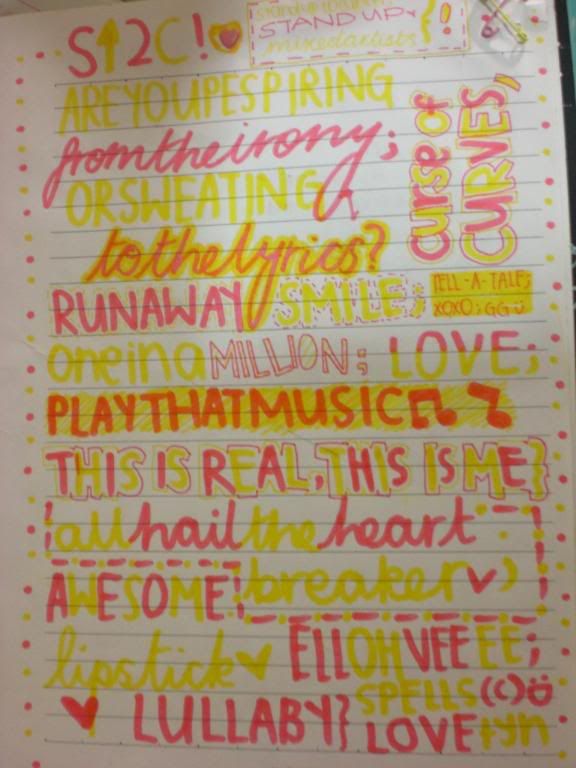 S↑2C!
stand up to cancer
STAND UP
mixedartists
AREYOUPESPIRING
fromtheirony;
ORSWEATING
tothelyrics?
curse of
CURVES,
RUNAWAY SMILE;
TELL-A-TALE;
XOXO; GG ü
oneina MILLION; LOVE;
PLAYTHATMUSIC♫♪
THIS IS REAL, THIS IS ME}
all hail the heart
breaker♥)
AWESOME!
lipstick♥ ELLOHVEEEE;
♥ LULLABY}
SPELLS(c)ö
LOVE tyn